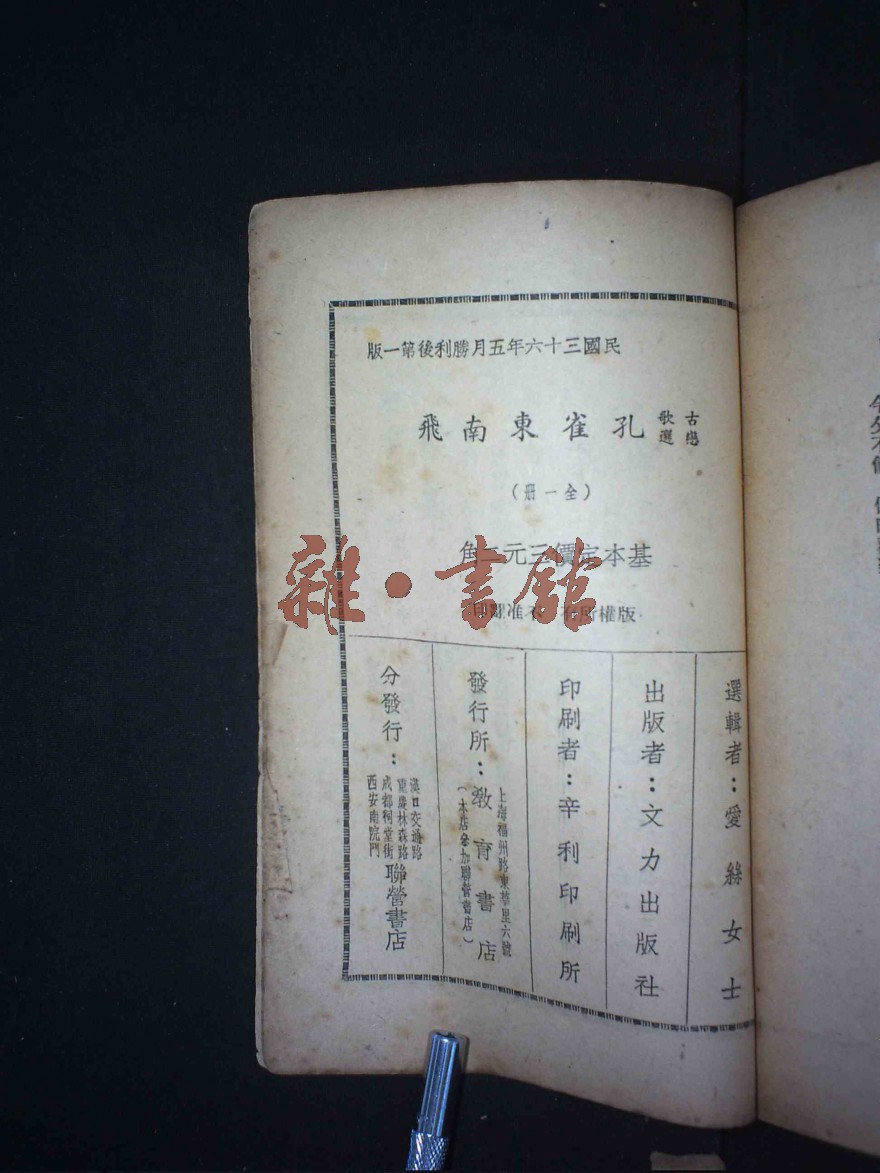 民國三十六年五月勝利後第一版
古戀歌選
孔雀東南飛
（全一冊）
基本定價三元二角
版權所有 不准翻印
選輯者：愛絲女士
出版者：文力出版社
印刷者：辛利印刷所
發行所：教育書店
上海福州路東華里六號
（本店參加聯營書店）
分發行：
漢口交通路
重慶林森路
成都祠堂街
西安南院門
聯營書店
雜·書館